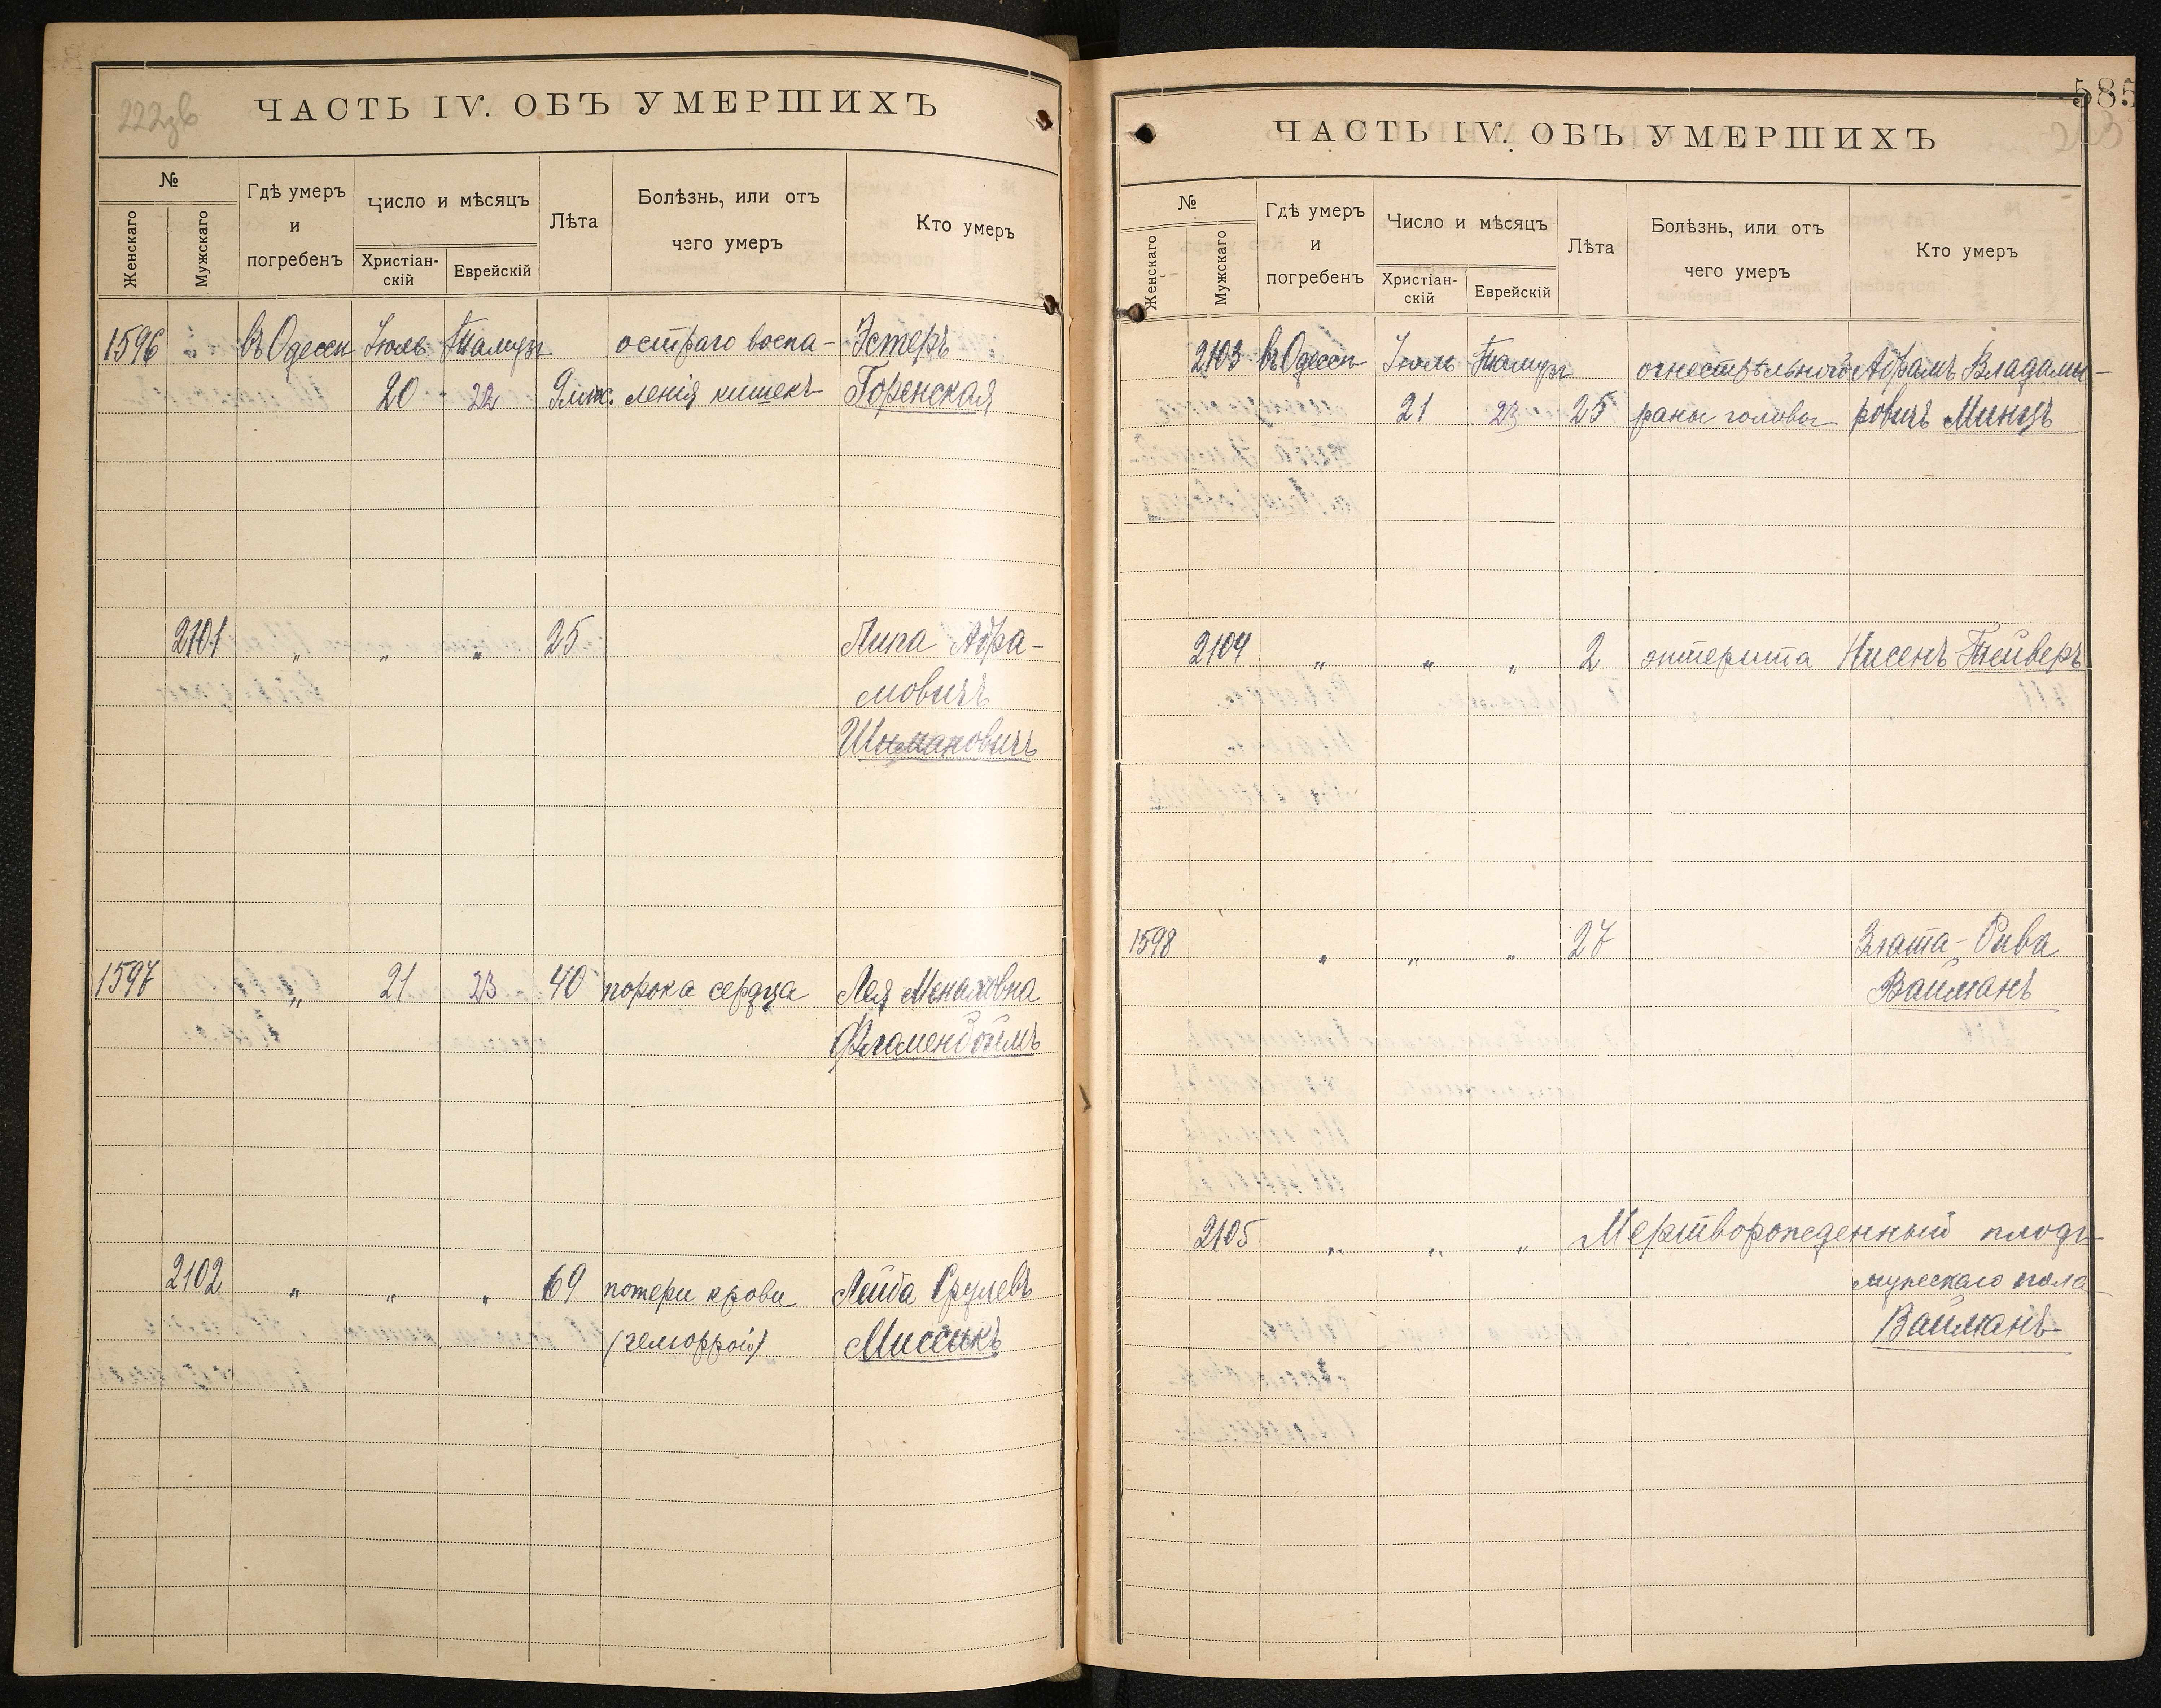 222зв
ЧАСТЬ IV. ОБЪ УМЕРШИХЪ
№
Женскаго
Мужскаго
Гдѣ умеръ
и
погребенъ
Число и мѣсяцъ
Христіан-
скій
Еврейскій
Лѣта
Болѣзнь, или отъ
чего умеръ
Кто умеръ
1596 въ Одессѣ Іюль Тамузъ остраго воспа- Эстеръ
20 22 9 мѣс. ленія кишекъ Горенская
2101 " " " 25 Абра-
мовичъ
Шимановичъ
1597 " 21 23 40 порока сердца Лея
Фламенбоймъ
2102 " " " 69 потери крови Лейба Срулевъ
(геморрой) Миссикъ
585
ЧАСТЬ IV. ОБЪ УМЕРШИХЪ
№
Женскаго
Мужскаго
Гдѣ умеръ
и
погребенъ
Число и мѣсяцъ
Христіан-
скій
Еврейскій
Лѣта
Болѣзнь, или отъ
чего умеръ
Кто умеръ
2103 въ Одессѣ Іюль Тамузъ огнестрѣльной Абрамъ Владими-
21 23 25 раны головы ровичъ Минцъ
2104 " " " 2 энтерита Нисенъ Тейверъ
1598 " " " 27 Злата-Рива
Вайманъ
2105 " " " Мертворожденный плодъ
мужескаго пола
Вайманъ